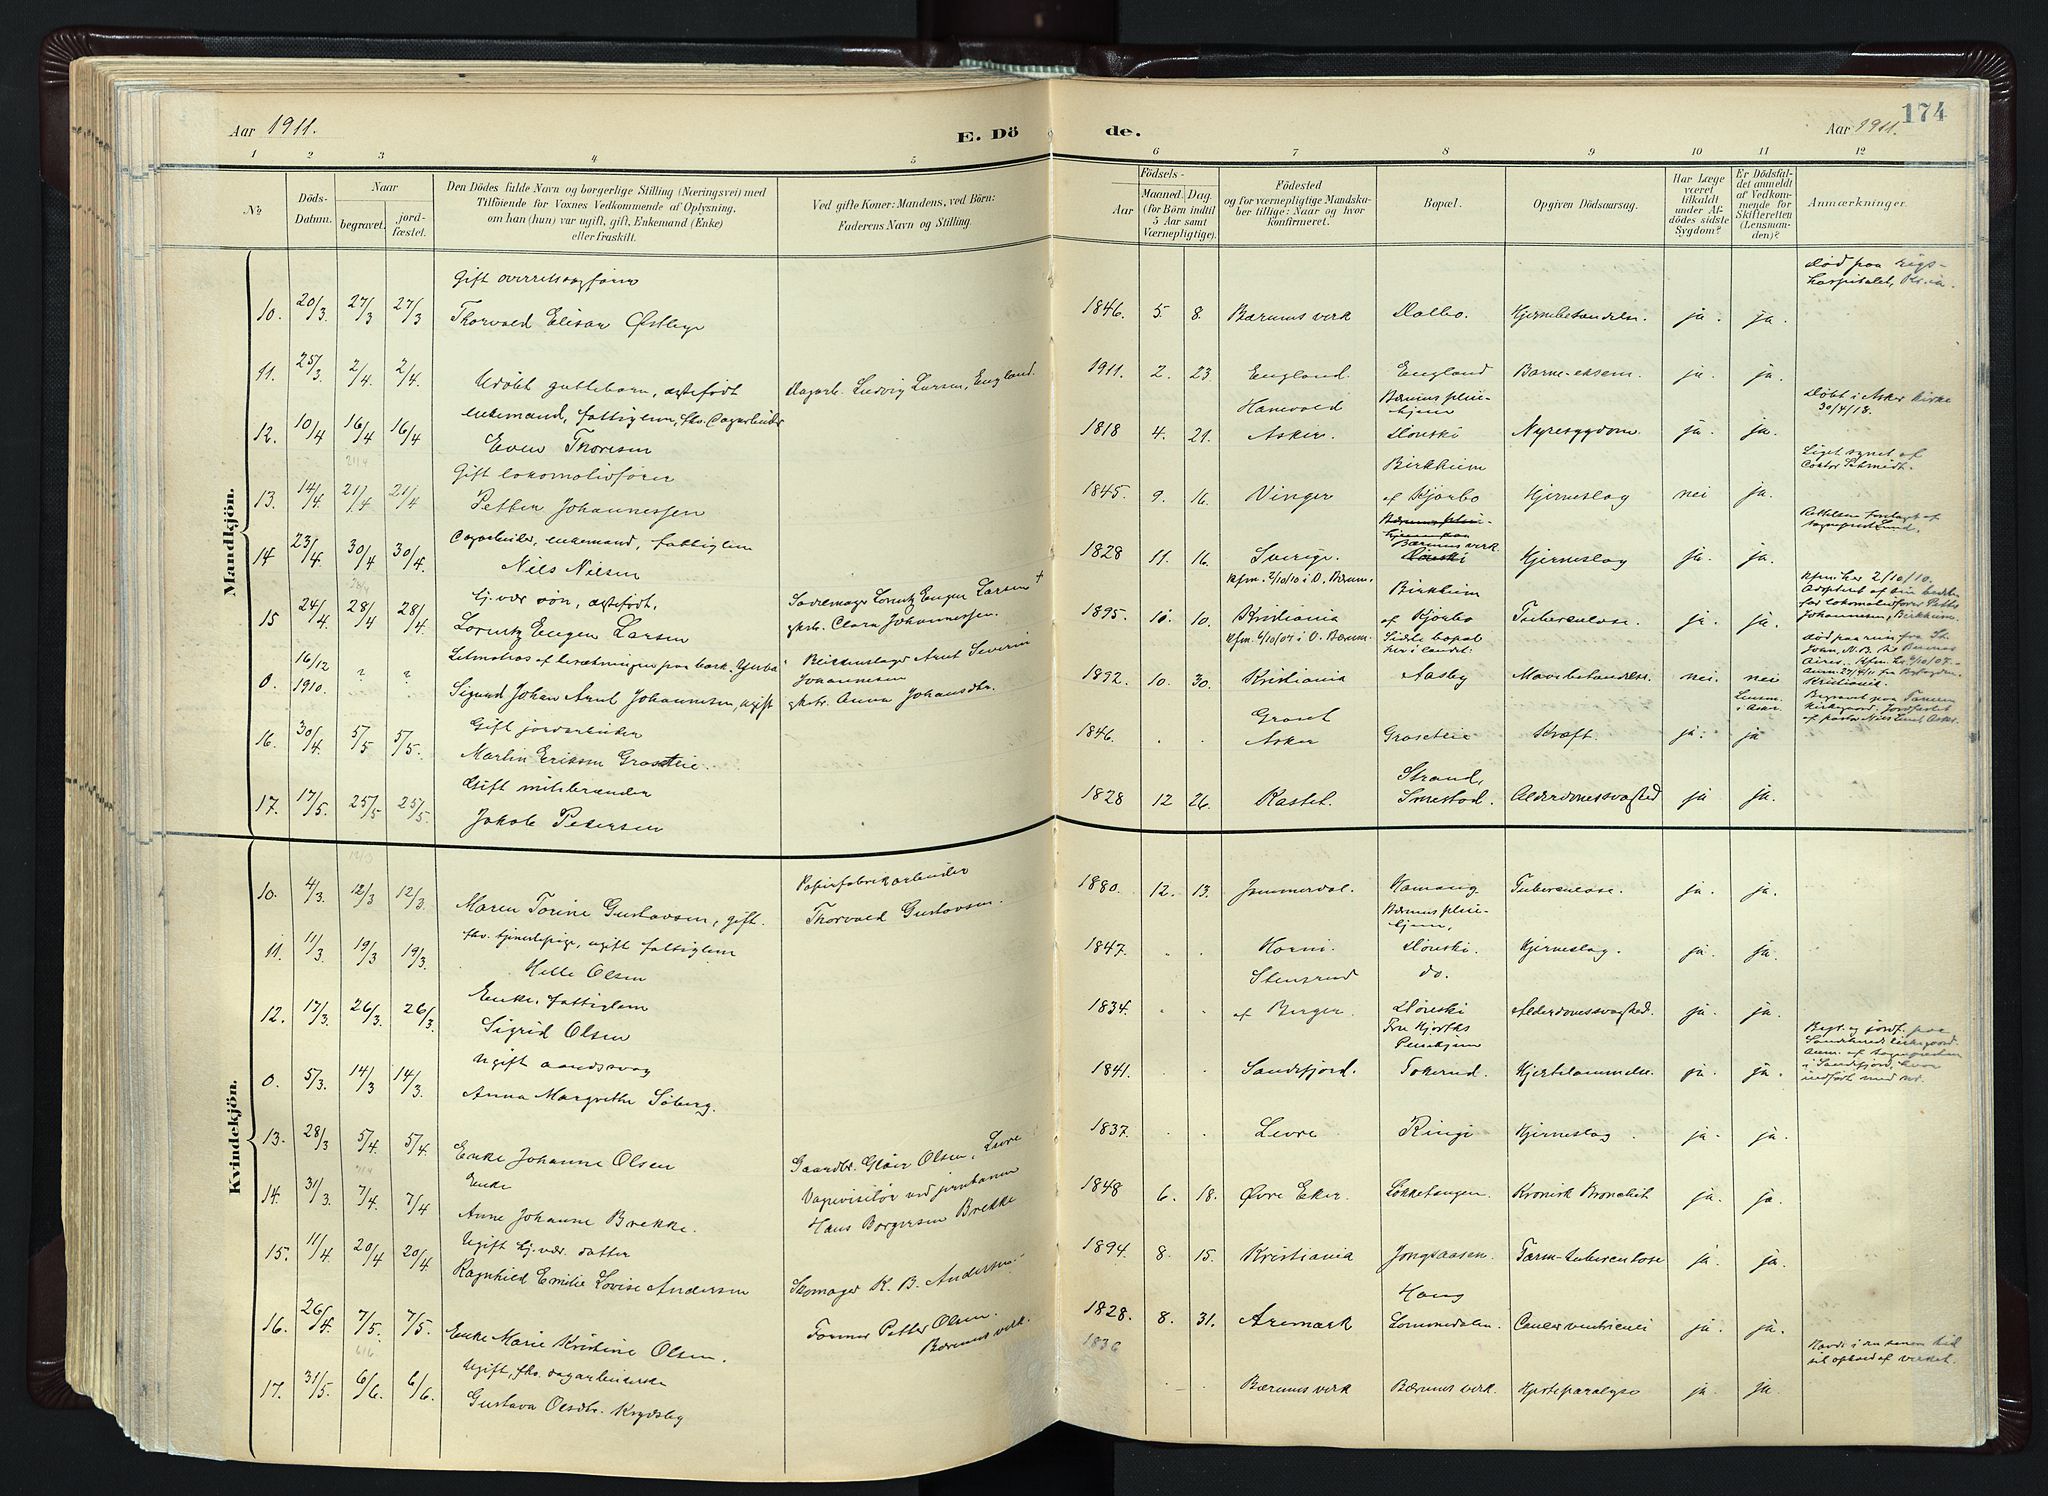 174
Aar 1911.
E. Dö
de.
Aar 1911.
1 2 3 4 5 6 7 8 9 10 11 12
No
Döds-
Datum.
Naar
begravet.
jord-
fæstet.
Den Dödes fulde Navn og borgerlige Stilling (Næringsvei) med
Tilföiende for Voxnes Vedkommende af Oplysning,
om han (hun) var ugift, gift, Enkemand (Enke)
eller fraskilt.
Ved gifte Koner: Mandens, ved Börn:
Faderens Navn og Stilling.
Födsels-
Aar
Maaned. Dag.
(for Börn indtil
5 Aar samt
Værnepligtige).
Födested
og for værnepligtige Mandska-
ber tillige: Naar og hvor
konfirmeret.
Bopæl.
Opgiven Dödsaarsag.
Har Læge
været
tilkaldt
under Af-
dödes sidste
Sygdom?
Er Dödsfal-
det anmeldt
af Vedkom-
mende for
Skifteretten
(Lensman-
den)?
Anmærkninger.
Mandkjön.
Gift overretssagförer
Död paa Rigs-
hospitalet, Kr.ia.
10. 20/3 27/3 27/3 Thorvald Elisar Østbye 1846. 5. 8. Bærums verk Dalbo. Hjernebetændelse. ja. ja.
11. 25/3 2/4. 2/4. Udöbt guttebarn, ægtefødt Dagarb. Ludvig Larsen, England. 1911. 2. 23. England. England Barne-eksem. ja. ja.
enkemand, fattiglem, fhv. Dagarbeider
Hanevold
Bærums pleie-
hjem
Döbt i Asker kirke
30/4/18.
12. 10/4 16/4 16/4 Even Thoresen 1818 4. 21. Asker. Dönski Nyresygdom ja. ja.
Gift lokomotivförer
Birkheim
Liget synet af
Doktor Schmidt.
13. 14/4 21/4 21/4 Petter Johannessen 1845. 9. 16. Vinger af Kjørbo Hjerneslag nei ja.
Dagarbeider, enkemand, fattiglem
Bærums verk.
14 23/4. 30/4 30/4. Nils Nilsen 1828 11. 16. Sverige. Dönski Hjerneslag ja. ja.
Hj. vær. søn, ægtefødt,
Sademager Lorentz Eugen Larsen †
Kfm. 2/10/10 i Ø. Bærum.
Birkheim
Kfm. her 2/10/10.
Adopteret af sin bedste-
far lokomotivfører Petter
Johannesen, Birkheim.
15 24/4. 28/4 28/4. Lorentz Eugen Larsen ghstr. Clara Johannessen. 1895. 10. 10. Kristiania af Kjørbo Tuberculose. ja. ja.
Letmatros af besætningen paa bark "Yerba"
Blikkenslager Arnt Severin
Johannesen
Kfm. 6/10/07 i Ø. Bærum.
Sidste bopæl
her i landet:
0. 16/12 1910. ? ? Sigurd Johan Arnt Johannesen, ugift ghstr. Anna Johansdtr. 1892. 10. 30. Kristiania Aasby Mavebetændelse. nei. nei
Gift jordarbeider
Grosset
Lensm.
i Asker.
Begravet paa Tanum
kirkegaard. Jordfæstet
af pastor Nils Lund, Asker.
16. 30/4. 5/5 5/5. Martin Eriksen Grosetteie. 1846. . . Asker Grosetteie Kræft. ja. ja
Gift milebrænder
Strand,
17. 17/5. 25/5 25/5. Jakob Petersen 1828 12 26. Kastet. Smestad. Alderdomssvaghed ja ja.
Kvindekjön.
Papirfabrikarbeider
10. 4/3. 12/3 12/3. Maren Torine Gustavsen, gift. Thorvald Gustavsen. 1880. 12. 13. Jammerdal. Hamang. Tuberculose. ja. ja.
fhv. tjenestepige, ugift fattiglem
Bærums pleie-
hjem,
11. 11/3. 19/3 19/3. Helle Olsen 1847. . . Horni. Dönski. Hjerneslag. ja. ja.
Enke, fattiglem
Stensrud
do.
12. 17/3. 26/3. 26/3. Sigrid Olsen 1834. . . af Berger. Dönski Alderdomssvaghed. ja. ja.
Ugift aandssvag
Fru Hjorths
Pleiehjem
0. 5/3. 14/3 14/3. Anna Margrethe Söberg. 1841. . . Sandefjord. Tokerud. Hjertelammelse. ja. ja.
Begr. og jordf. paa
Sandeherreds kirkegaard.
Anm. af sogneprest
i Sandefjord, hvor
indført med nr.
13. 28/3 5/4. 5/4. Enke Johanne Olsen Gaardbr. Gløer Olsen, Levre 1837. . . Levre Ringi Hjerneslag. ja. ja.
Enke
Vognvisitör ved jernbanen
14. 31/3. 7/4. 7/4 Anne Johanne Brekke. Hans Borgersen Brekke 1848 6. 18. Øvre Eker. Løkketangen. Kronisk Bronchit ja. ja.
Ugift hj. vær. datter
15. 11/4 20/4 20/4 Ragnhild Emilie Lovise Andersen Skomager K. B. Andersen. 1894. 8. 15. Kristiania Jongsaasen. Tarm-tuberculose ja. ja.
Haug
16. 26/4. 7/5. 7/5. Enke Marie Kristine Olsen. Former Petter Olsen. Bærums verk. 1828. 8. 31. Aremark Lommedalen. Cancer ventriculi ja. ja.
1836
Ugift, fhv. dagarbeiderske
17. 31/5. 6/6. 6/6. Gustava Olsdtr. Krydsby . . Bærums verk Bærums verk. Hjerteparalyse ja. ja.